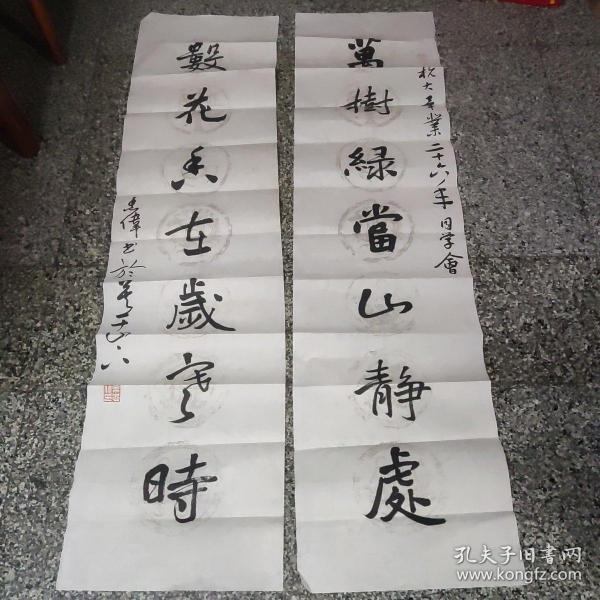 萬樹綠當山靜處
杭大畢業二十六年同学會
數花香在歲寒時
孔夫子旧書网
www.kongfz.com